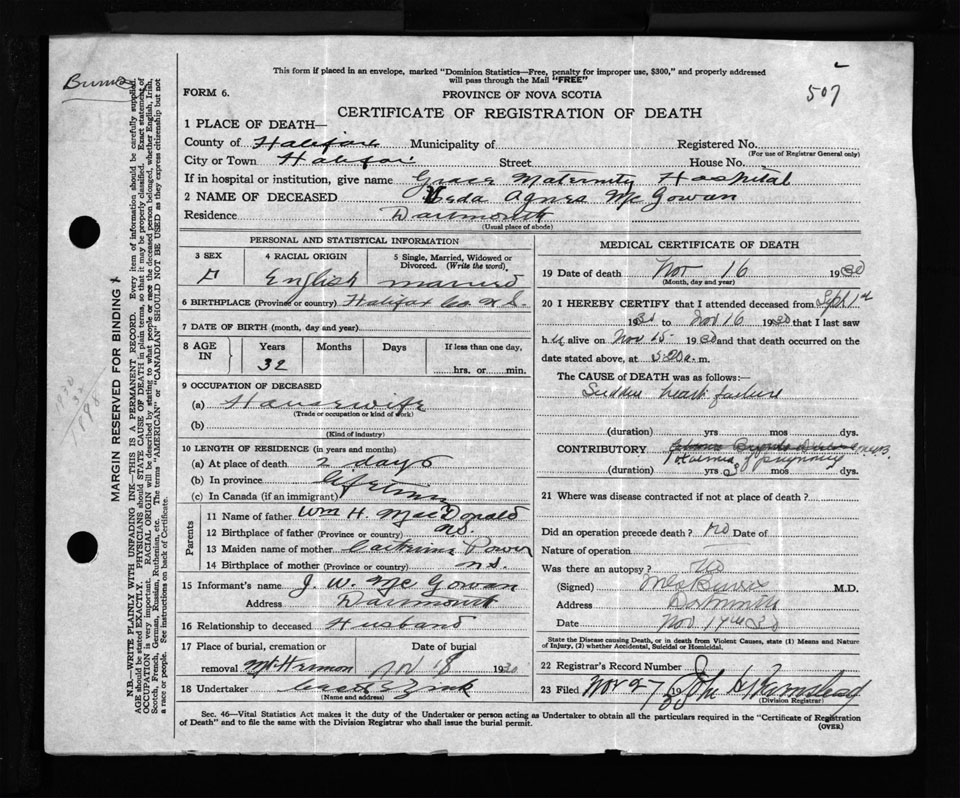 This form if placed in an envelope, marked "Dominion Statistics—Free, penalty for improper use, $300," and properly addressed
will pass through the Mail "FREE"
507
FORM 6.
PROVINCE OF NOVA SCOTIA
CERTIFICATE OF REGISTRATION OF DEATH
1 PLACE OF DEATH—
County of Halifax Municipality of Registered No.
(For use of Registrar General only)
City or Town Halifax Street House No.
If in hospital or institution, give name Grace Maternity Hospital
2 NAME OF DECEASED Agnes McGowan
Residence Dartmouth
(Usual place of abode)
PERSONAL AND STATISTICAL INFORMATION
3 SEX 4 RACIAL ORIGIN 5 Single, Married, Widowed or
Divorced. (Write the word).
F English married
6 BIRTHPLACE (Province or country) Halifax Co. N.S.
7 DATE OF BIRTH (month, day and year)
8 AGE IN Years Months Days If less than one day,
32 hrs. or min.
9 OCCUPATION OF DECEASED
(a) Housewife
(Trade or occupation or kind of work)
(b)
(Kind of industry)
10 LENGTH OF RESIDENCE (in years and months)
(a) At place of death 2 days
(b) In province Lifetime
(c) In Canada (if an immigrant)
Parents
11 Name of father Wm H. MacDonald
12 Birthplace of father (Province or country) N.S.
13 Maiden name of mother Power
14 Birthplace of mother (Province or country) N.S.
15 Informant's name J. W. McGowan
Address Dartmouth
16 Relationship to deceased Husband
17 Place of burial, cremation or Date of burial
removal Mt Hermon Nov 18 1930
18 Undertaker Zink
(Name and address)
MEDICAL CERTIFICATE OF DEATH
19 Date of death Nov 16 1930
(Month, day and year)
20 I HEREBY CERTIFY that I attended deceased from Sept 1st
1930 to Nov 16 1930 that I last saw
her alive on Nov 15 1930 and that death occurred on the
date stated above, at 5.20 a. m.
The CAUSE OF DEATH was as follows:—
Sudden heart failure
(duration) yrs mos dys.
CONTRIBUTORY
pregnancy
(duration) yrs mos dys.
21 Where was disease contracted if not at place of death?
Did an operation precede death? No Date of
Nature of operation —
Was there an autopsy? No
(Signed) M.D.
Address Dartmouth
Date Nov 17th 30
State the Disease causing Death, or in death from Violent Causes, state (1) Means and Nature
of Injury, (2) whether Accidental, Suicidal or Homicidal.
22 Registrar's Record Number
23 Filed Nov 27 1930 John H.
(Division Registrar)
Sec. 46—Vital Statistics Act makes it the duty of the Undertaker or person acting as Undertaker to obtain all the particulars required in the "Certificate of Registration
of Death" and to file the same with the Division Registrar who shall issue the burial permit.
(OVER)
MARGIN RESERVED FOR BINDING
N.B.—WRITE PLAINLY WITH UNFADING INK—THIS IS A PERMANENT RECORD. Every item of information should be carefully supplied.
AGE should be stated EXACTLY. PHYSICIANS should STATE CAUSE OF DEATH in plain terms, so that it may be properly classified. Exact statement of
OCCUPATION is very important. RACIAL ORIGIN will be described by stating to what people or race the deceased person belonged, whether English, Irish,
Scotch, French, German, Russian, Ruthenian, etc. The terms "AMERICAN" or "CANADIAN" SHOULD NOT BE USED as they express citizenship but not
a race or people. See instructions on back of Certificate.
1930
32
1898